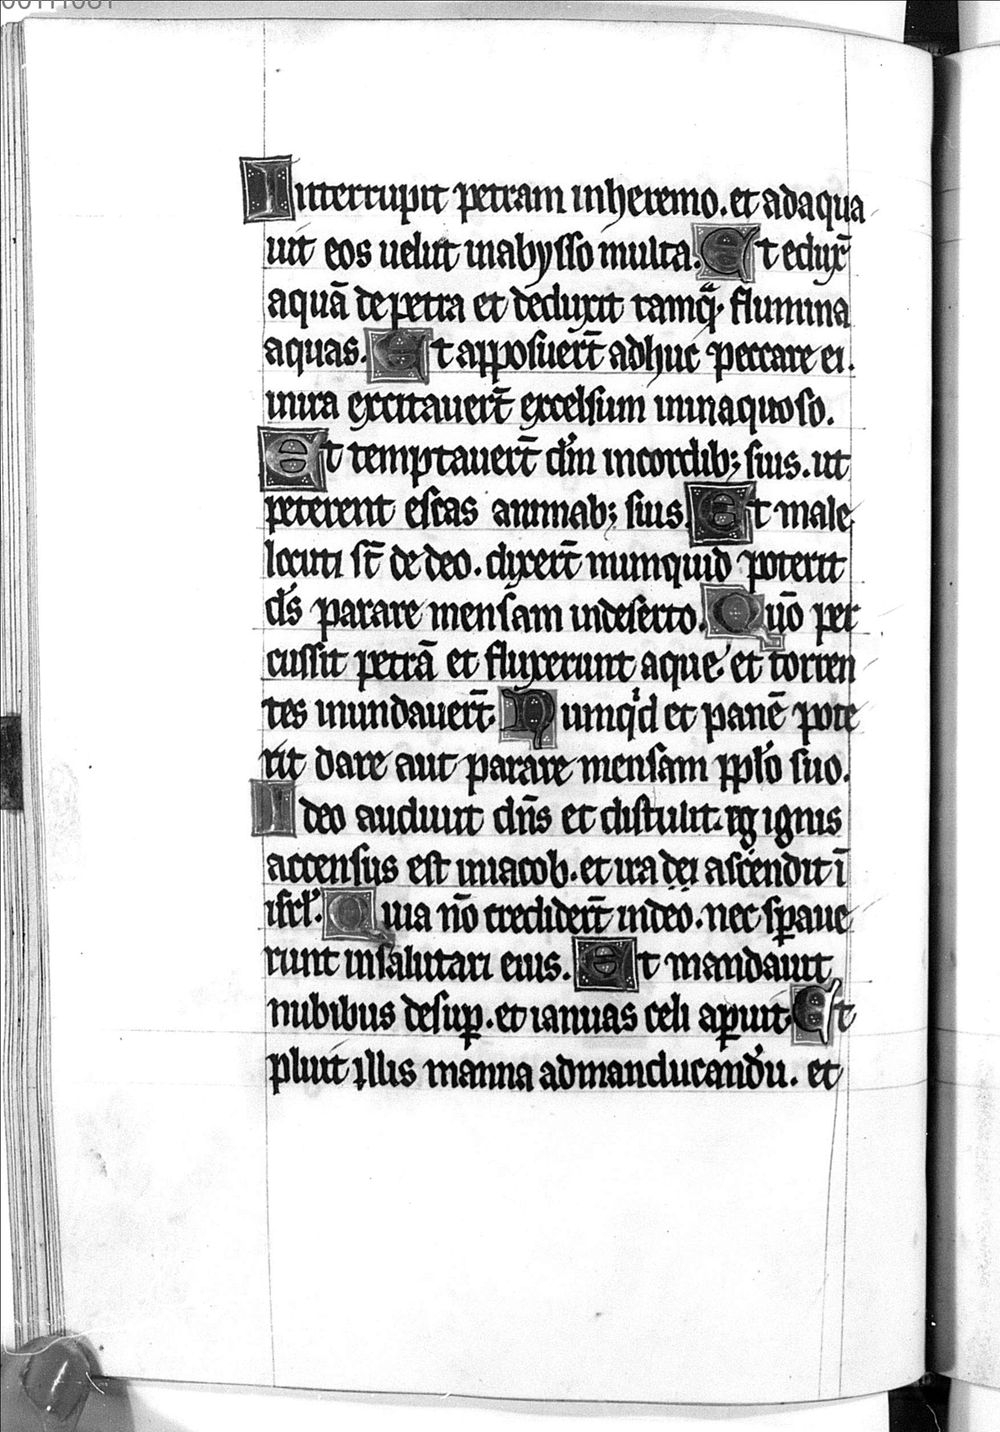 Interrupit petram in heremo. et adaqua
uit eos uelut in abysso multa. Et eduxͬ
aquā de petra et deduxit tamq̄ᷓ flumina
aquas. Et apposuer̄t adhuc peccare ei.
in ira excitauer̄t excelsum in inaquoso.
Et temptauer̄t dm̄ in cordib; suis. ut
peterent escas animab; suis. Et male
locuti st̄ de deo. dixer̄t numquid poterit
ds̄ parare mensam in deserto. Quō per
cussit petrā et fluxerunt aque et torren
tes inundauer̄t. Numqͥd et panē pote
rit dare aut parare mensam pplo̅ suo.
Ideo audiuit dn̄s et distulit. 7 ignis
accensus est in iacob. et ira dei ascendit ī
isrl̄. Quia nō credider̄t in deo. nec sꝑaue
runt in salutari eius. Et mandauit
nubibus desuꝑ. et ianuas celi aꝑuit Et
pluit illis manna ad manducandū. et